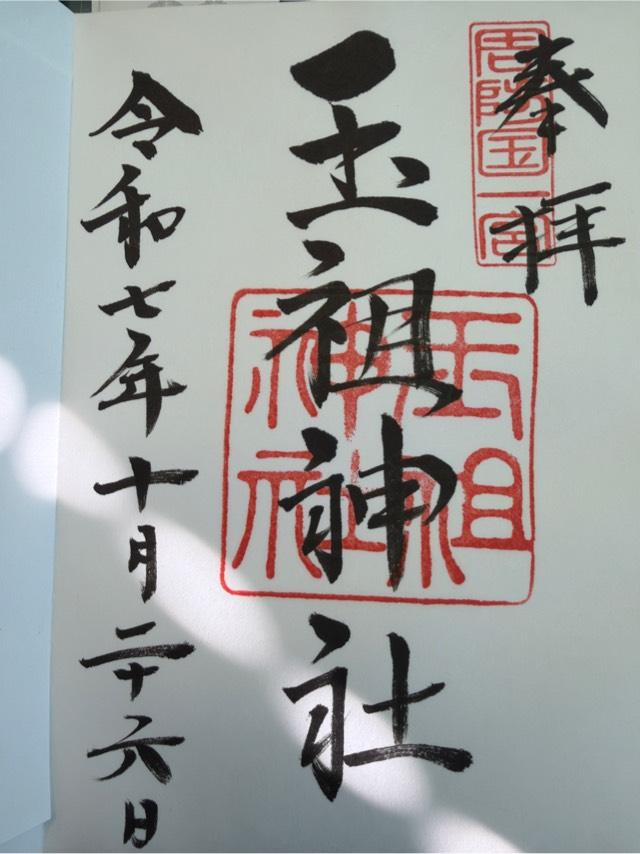 奉拝
周防国一宮
玉祖神社
玉祖
神社
令和七年十月二十六日